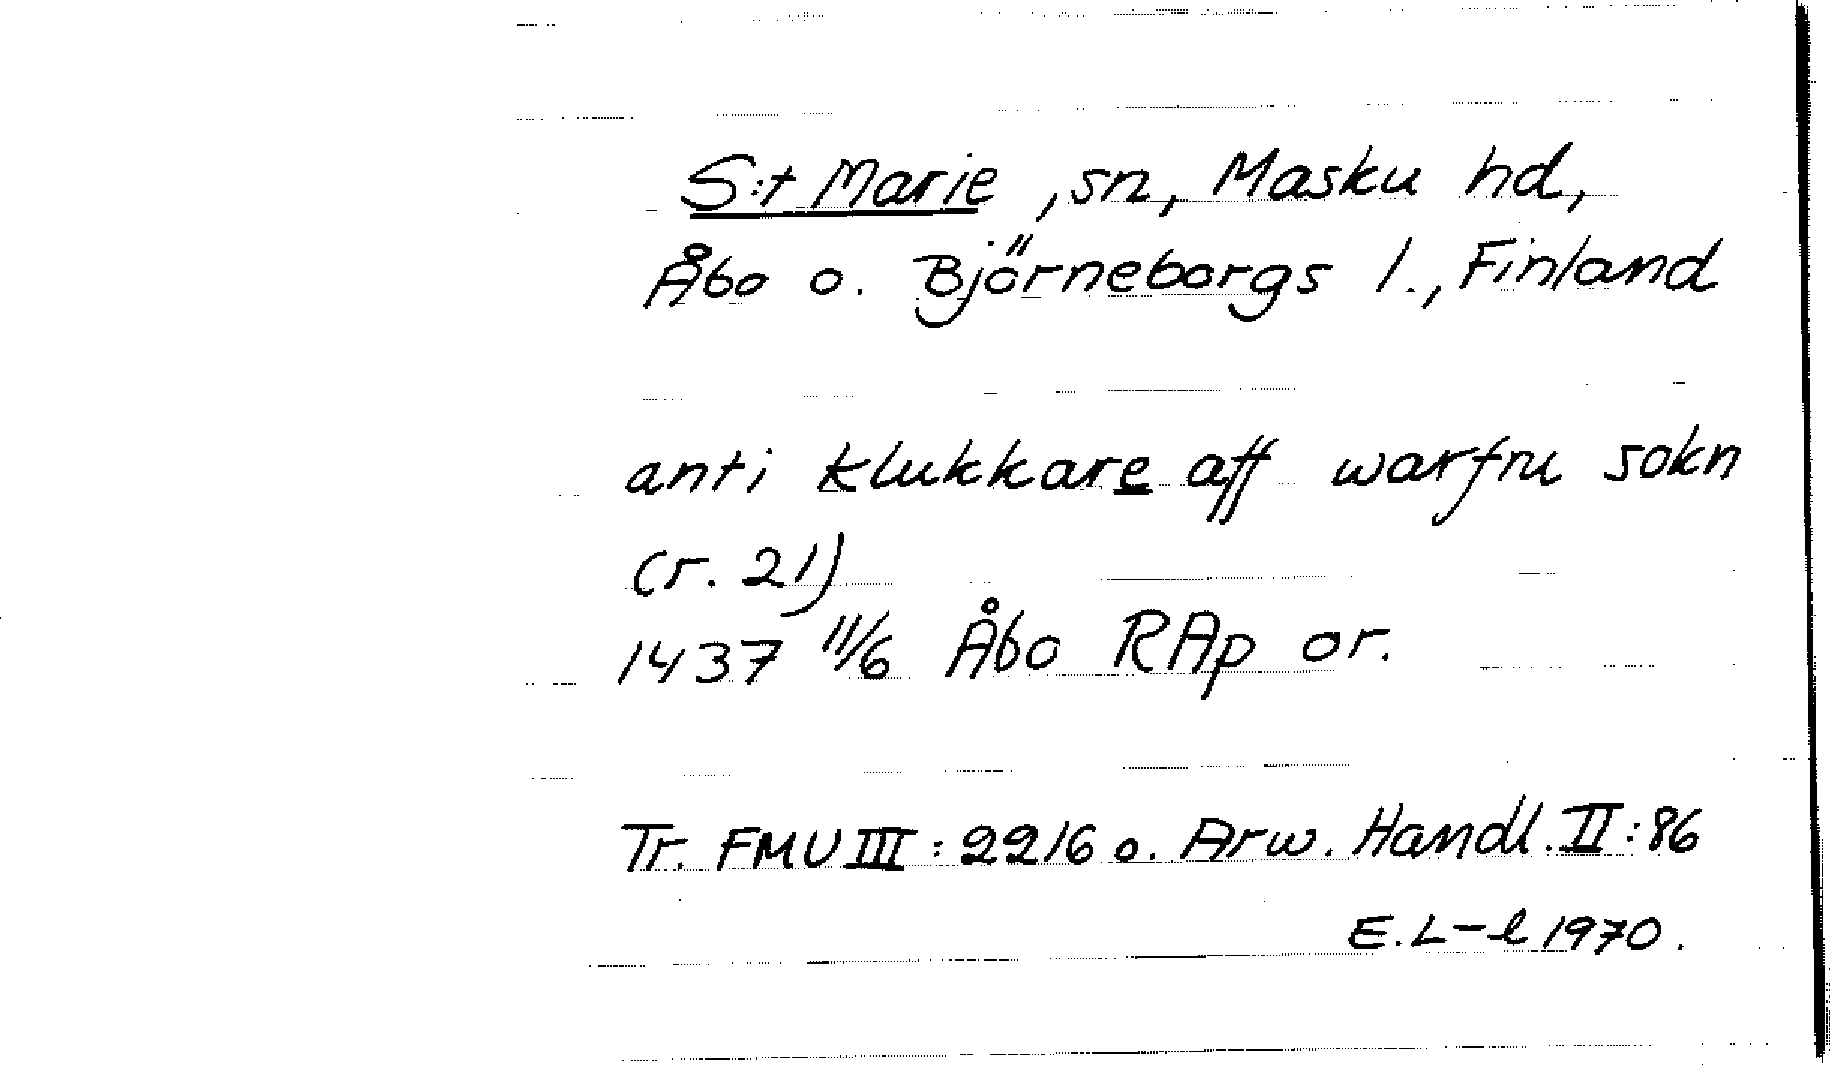 S:t Marie, sn, Masku hd,
Åbo o. Björneborgs l., Finland
anti klukkare aff warfru sokn
(r. 21)
1437 11/6 Åbo RAp or.
Tr. FMU III: 2216 o. Arw. Handl. II: 86
E. L-l 1970.